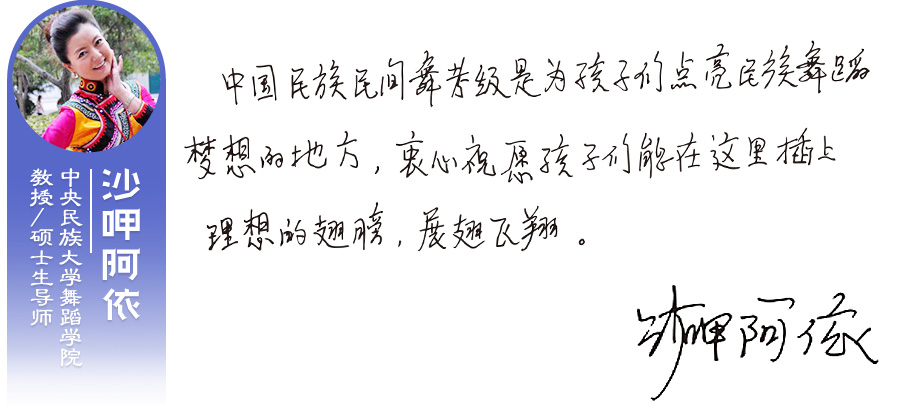 沙呷阿依
中央民族大学舞蹈学院
教授/硕士生导师
中国民族民间舞考级是为孩子们点亮民族舞蹈
梦想的地方，衷心祝愿孩子们能在这里插上
理想的翅膀，展翅飞翔。
沙呷阿依